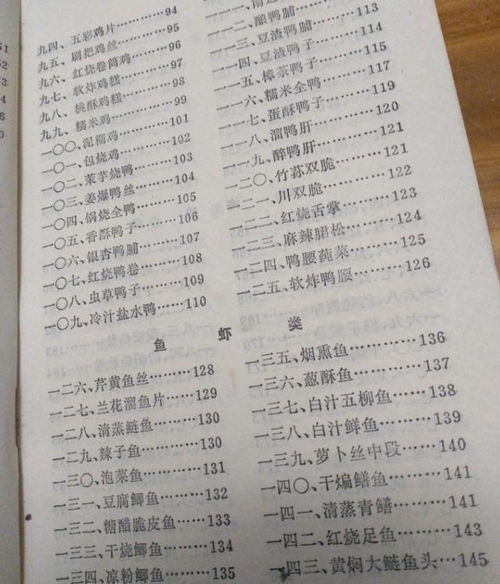 九四、五彩鸡片…………94
九五、刷把鸡丝…………95
九六、红烧卷筒鸡………96
九七、软炸鸡糕…………97
九八、桃酥鸡糕…………98
九九、糯米鸡……………99
一〇〇、泥糊鸡…………101
一〇一、包烧鸡…………102
一〇二、茉芋烧鸭………103
一〇三、姜爆鸭丝………104
一〇四、锅烧全鸭………105
一〇五、香酥鸭子………106
一〇六、银杏鸭脯………107
一〇七、红烧鸭卷………108
一〇八、虫草鸭子………109
一〇九、冷汁盐水鸭……110
一一二、酿鸭脯…………113
一一三、豆渣鸭脯………114
一一四、豆渣鸭子………115
一一五、樟茶鸭子………117
一一六、糯米全鸭………119
一一七、蛋酥鸭子………120
一一八、溜鸭肝…………120
一一九、醉鸭肝…………121
一二〇、竹荪双脆………121
一二一、川双脆…………122
一二二、红烧舌掌………123
一二三、麻辣腒松………124
一二四、鸭腰莼菜………125
一二五、软炸鸭腰………126
鱼 虾 类
一二六、芹黄鱼丝………128
一二七、兰花溜鱼片……129
一二八、清蒸鲢鱼………130
一二九、辣子鱼…………130
一三〇、泡菜鱼…………131
一三一、豆腐鲫鱼………132
一三二、糖醋脆皮鱼……133
一三三、干烧鲫鱼………134
一三四、凉粉鲫鱼………135
一三五、烟熏鱼…………136
一三六、葱酥鱼…………137
一三七、白汁五柳鱼……138
一三八、白汁鲜鱼………139
一三九、萝卜丝中段……140
一四〇、干煸鳝鱼………141
一四一、清蒸青鳝………141
一四二、红烧足鱼………143
一四三、黄焖大鲢鱼头…145